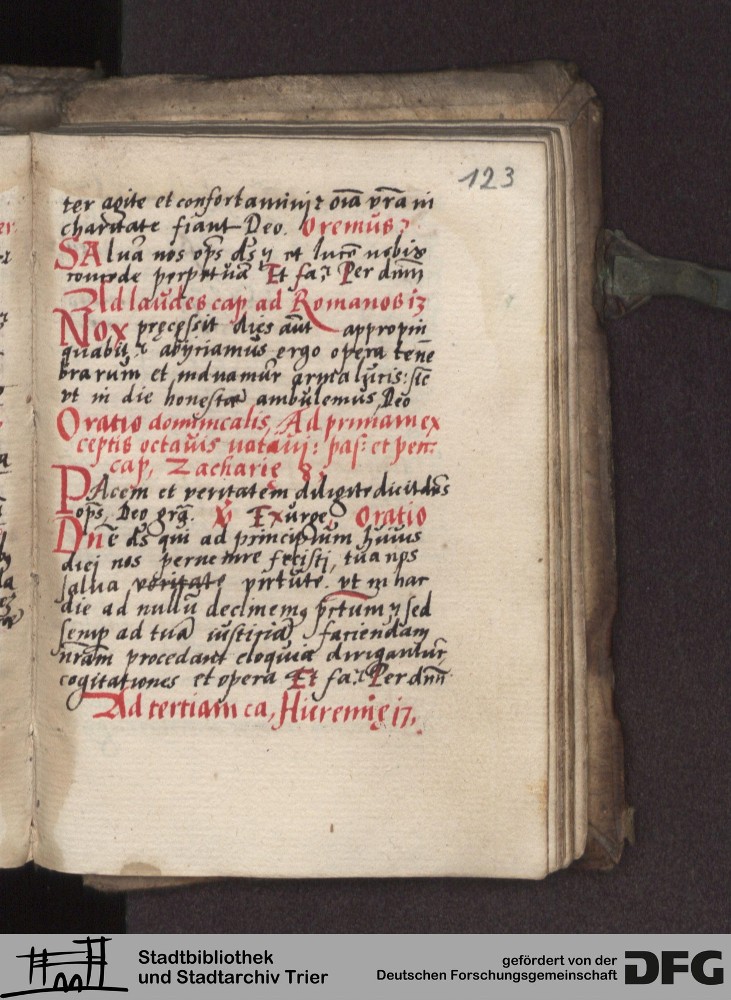 123
ter agite et confortamini ⁊ oīa vr̄a in
charitate fiant Deo. Oremus
SAlva nos op̄s ds̄ et lucē nobis
concede perpetuā Et fa: Per dnm̄
Ad laudes cap ad Romanos 13
Nox pręcessit dies aūt appropin
quabit abijciamus ergo opera tene
brarum et induamur arma lucis: sic
vt in die honeste ambulemus Deo
Oratio dominicalis, Ad primam ex
ceptis octauis natiui: pas: et pen:
cap, Zacharię 8.
PAcem et veritatem diligite dicit dn̄s
op̄s, Deo grā. V Exurge Oratio
Dn̄e ds̄ qui ad principium huius
diei nos pervenire fecisti, tua nos
salua veritate virtute. vt in hac
die ad nullū declinemꝯ pctum sed
semp ad tuā iustitiā faciendam
nr̄am procedant eloquia dirigantur
cogitationes et opera Et fa: Per dnn̄
Ad tertiam ca, Hieremię 17.
Stadtbibliothek
und Stadtarchiv Trier
gefördert von der
Deutschen Forschungsgemeinschaft
DFG